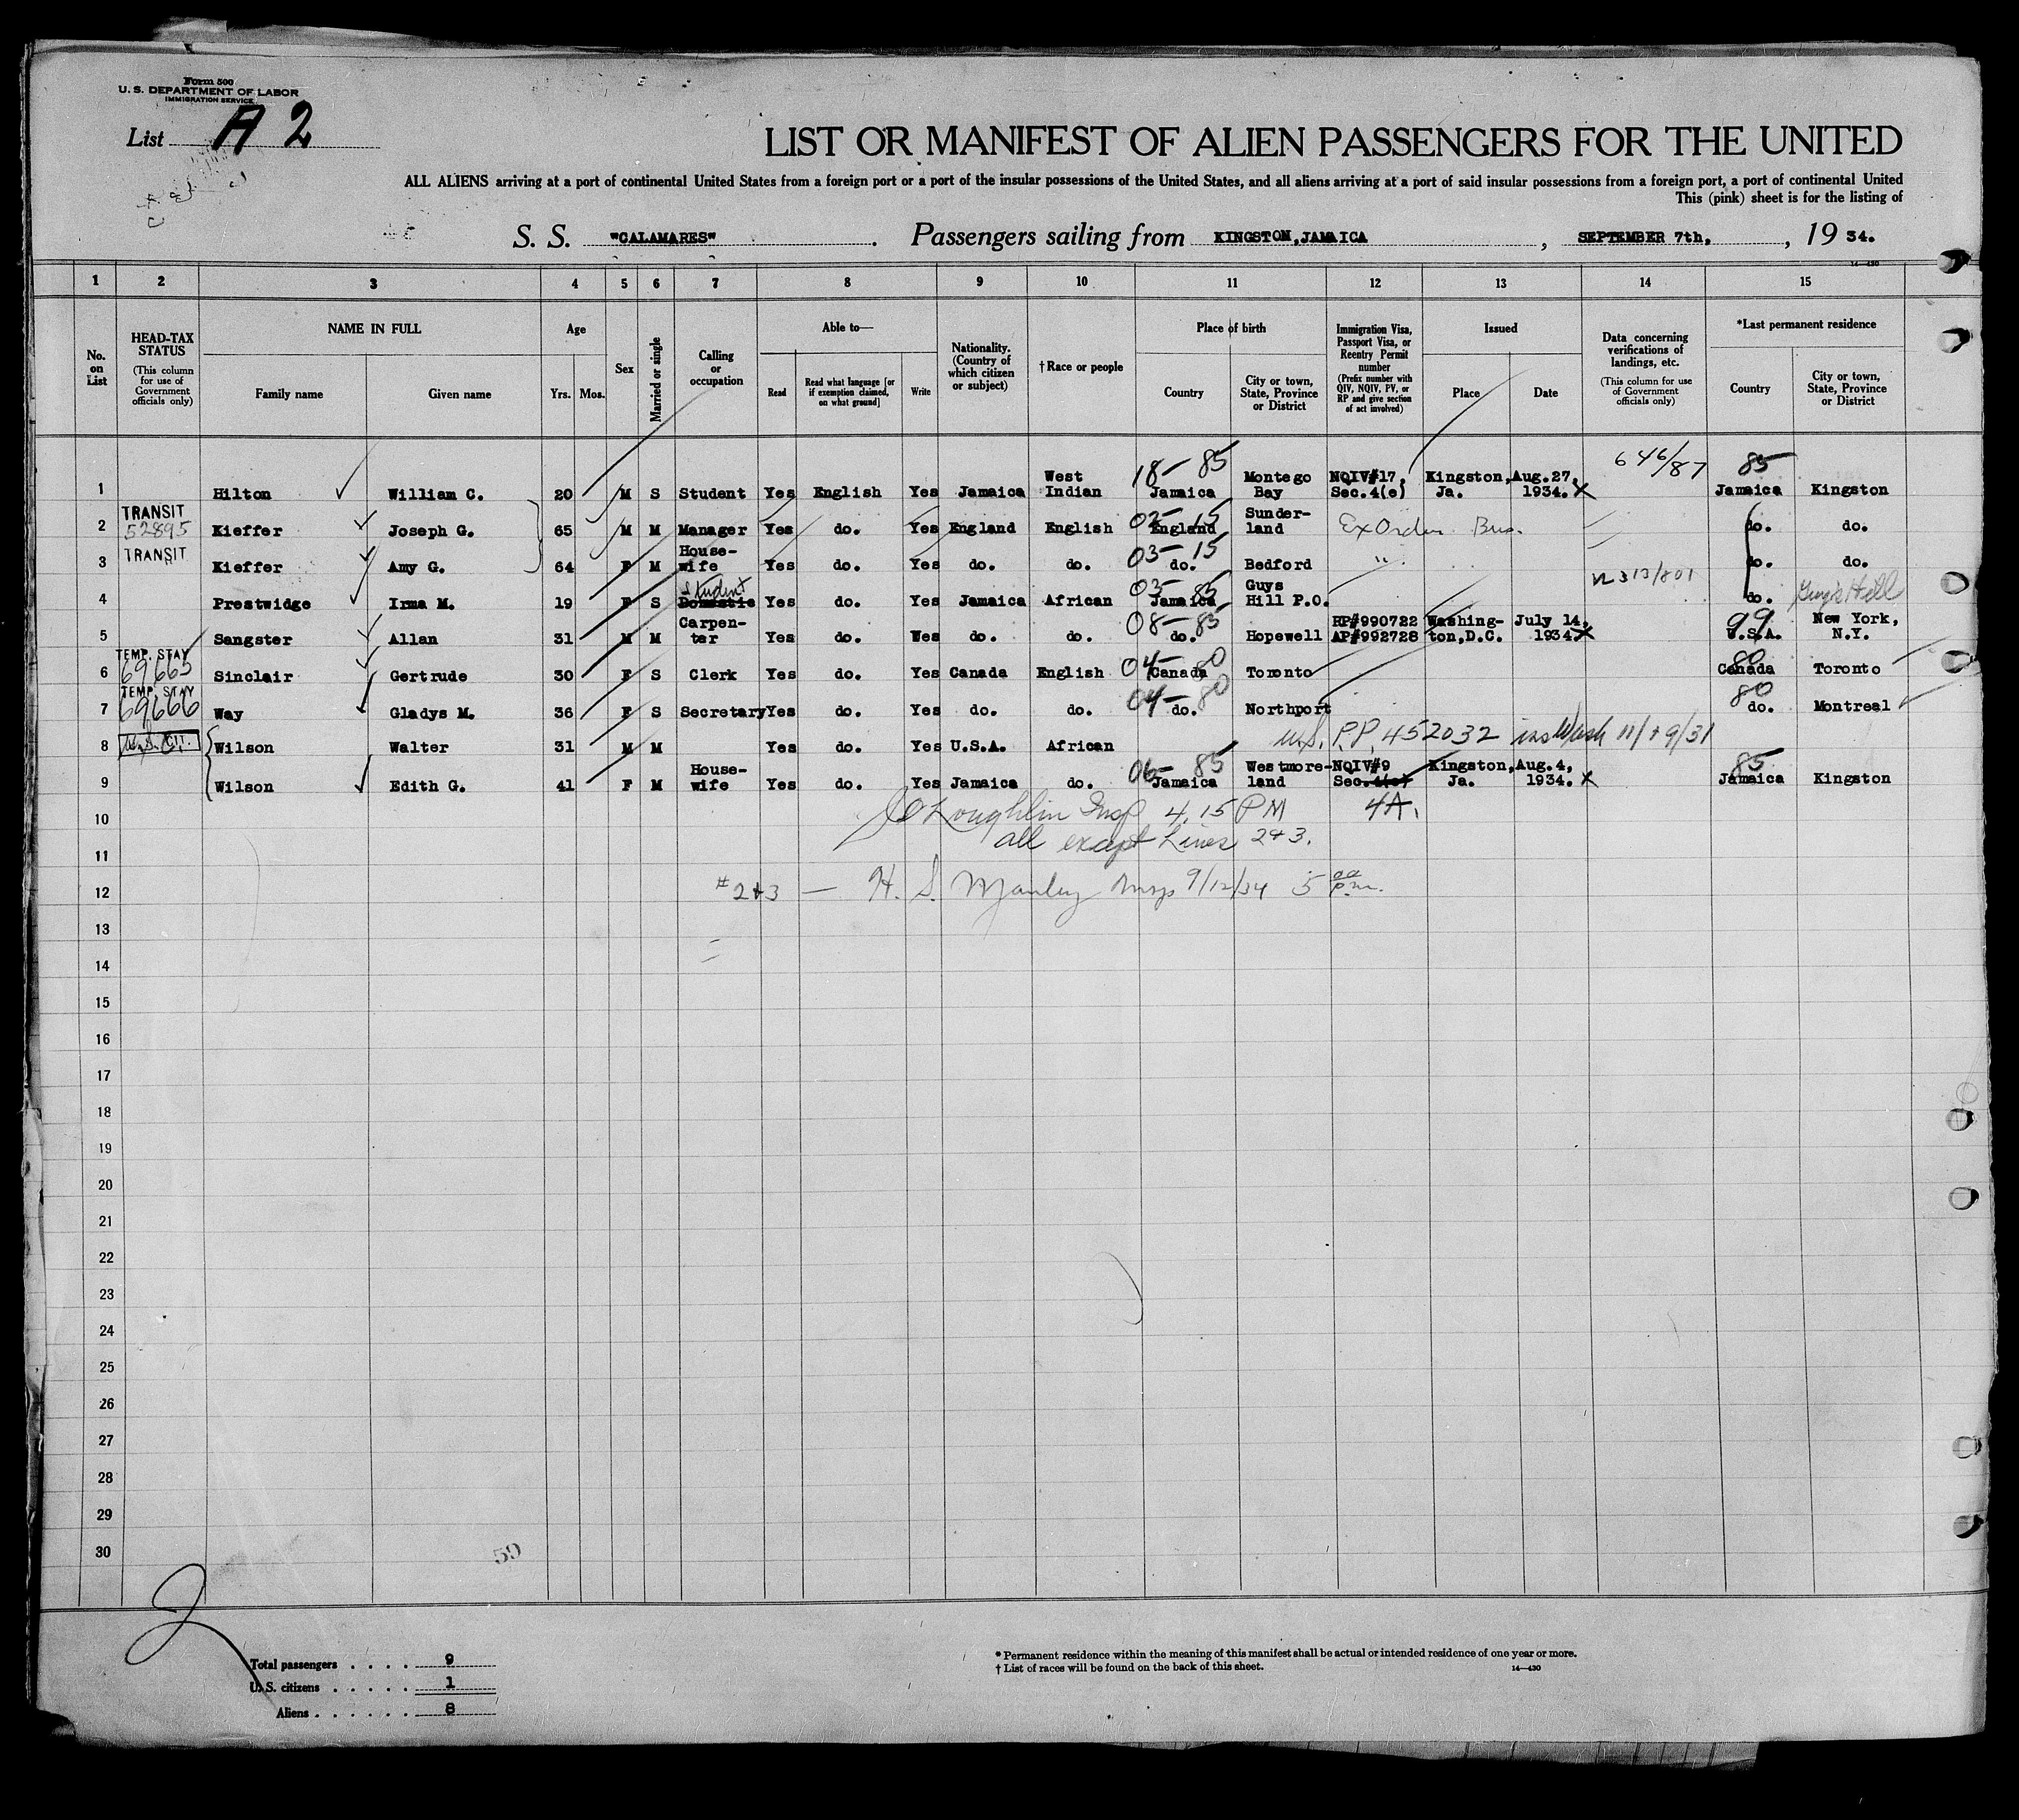 Form 500
U. S. DEPARTMENT OF LABOR
IMMIGRATION SERVICE
List A 2
LIST OR MANIFEST OF ALIEN PASSENGERS FOR THE UNITED
ALL ALIENS arriving at a port of continental United States from a foreign port or a port of the insular possessions of the United States, and all aliens arriving at a port of said insular possessions from a foreign port, a port of continental United
This (pink) sheet is for the listing of
S. S. "CALAMARES". Passengers sailing from KINGSTON,JAMAICA, SEPTEMBER 7th,, 19 34.
14—430
1 2 3 4 5 6 7 8 9 10 11 12 13 14 15
No. on List
HEAD-TAX STATUS (This column for use of Government officials only)
NAME IN FULL
Family name Given name
Age
Yrs. Mos.
Sex
Married or single
Calling or occupation
Able to—
Read Read what language [or if exemption claimed, on what ground] Write
Nationality. (Country of which citizen or subject)
† Race or people
Place of birth
Country City or town, State, Province or District
Immigration Visa, Passport Visa, or Reentry Permit number (Prefix number with QIV, NQIV, PV, or RP and give section of act involved)
Issued
Place Date
Data concerning verifications of landings, etc. (This column for use of Government officials only)
*Last permanent residence
Country City or town, State, Province or District
1 Hilton William C. 20 M S Student Yes English Yes Jamaica West Indian 18-85 Jamaica Montego Bay NQIV#17, Sec.4(e) Kingston, Ja. Aug.27, 1934. X 646/87 85 Jamaica Kingston
2 TRANSIT 52895 Kieffer Joseph G. 65 M M Manager Yes do. Yes England English 03-15 England Sunder-land Ex Order Bus. do. do.
3 TRANSIT Kieffer Amy G. 64 F M House-wife Yes do. Yes do. do. 03-15 do. Bedford " do. do.
4 Prestwidge Irma M. 19 F S Domestic Student Yes do. Yes Jamaica African 03-85 Jamaica Guys Hill P.O. 313/801 do. Guy's Hill
5 Sangster Allan 31 M M Carpen-ter Yes do. Wes do. do. 08-85 do. Hopewell RP#990722 AP#992728 Washing-ton,D.C. July 14, 1934. X 99 U.S.A. New York, N.Y.
6 TEMP. STAY 69665 Sinclair Gertrude 30 F S Clerk Yes do. Yes Canada English 04-80 Canada Toronto 80 Canada Toronto
7 TEMP. STAY 69666 Way Gladys M. 36 F S Secretary Yes do. Yes do. do. 04-80 do. Northport 80 do. Montreal
8 U.S. CIT. Wilson Walter 31 M M Yes do. Yes U.S.A. African U.S. P.P. 452032 iss Wash
9 Wilson Edith G. 41 F M House-wife Yes do. Yes Jamaica do. 06-85 Jamaica Westmore-land NQIV#9 Sec.4(e) 4A. Kingston, Ja. Aug.4, 1934. X 85 Jamaica Kingston
10 O'Loughlin Insp 4.15 PM
11 all except Lines 2&3.
12 #2&3 — H. S. Manley Insp 9/12/34 5 00 p.m.
13
14
15
16
17
18
19
20
21
22
23
24
25
26
27
28
29
30
59
2
Total passengers . . . . 9
U.S. citizens . . . . . 1
Aliens . . . . . . 8
* Permanent residence within the meaning of this manifest shall be actual or intended residence of one year or more.
† List of races will be found on the back of this sheet.
14—430